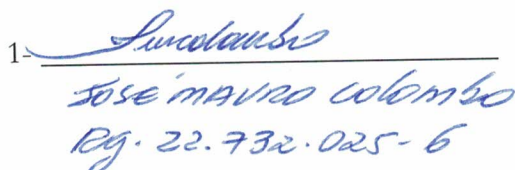 1-
JOSÉ MAURO COLOMBO
Rg. 22.732.025-6